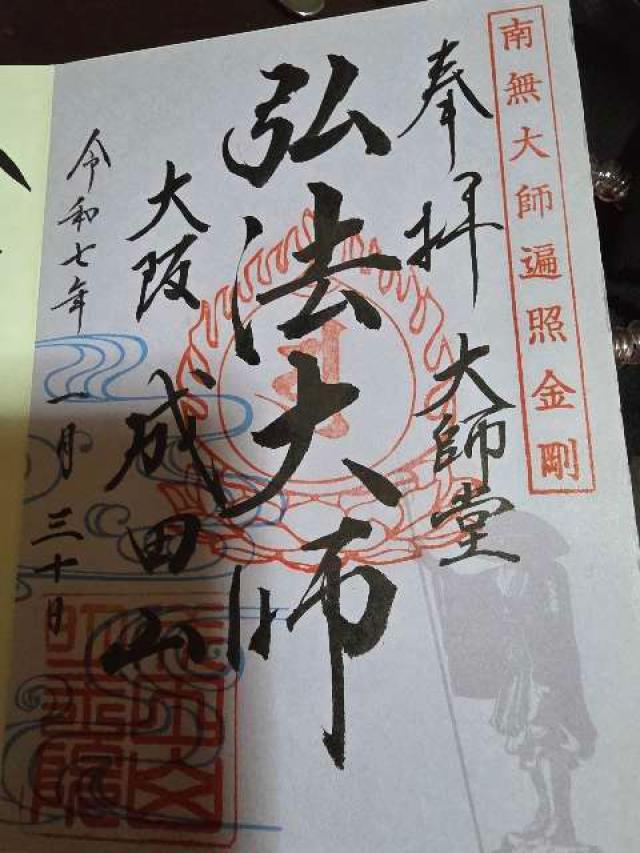 南無大師遍照金剛
奉拝 大師堂
弘法大師
大阪 成田山
令和七年 一月三十日
成田山
明王院